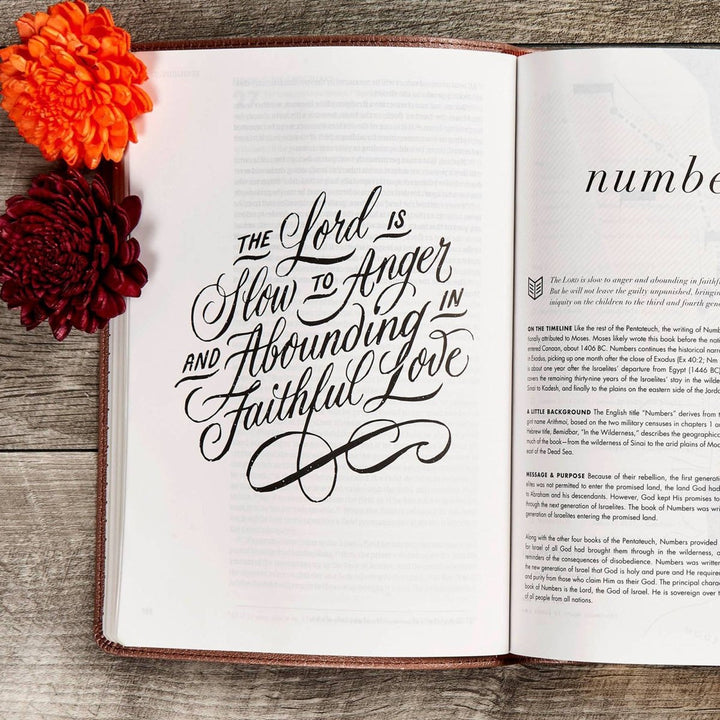 THE Lord IS
Slow TO Anger
AND Abounding IN
Faithful Love
numbe
The LORD is slow to anger and abounding in faithf
But he will not leave the guilty unpunished, bringing
iniquity on the children to the third and fourth gene
ON THE TIMELINE Like the rest of the Pentateuch, the writing of Numb
tionally attributed to Moses. Moses likely wrote this book before the natio
entered Canaan, about 1406 BC. Numbers continues the historical narra
in Exodus, picking up one month after the close of Exodus (Ex 40:2; Nm
is about one year after the Israelites' departure from Egypt (1446 BC)
covers the remaining thirty-nine years of the Israelites' stay in the wilde
Sinai to Kadesh, and finally to the plains on the eastern side of the Jorda
A LITTLE BACKGROUND The English title "Numbers" derives from t
gint name Arithmoi, based on the two military censuses in chapters 1 a
Hebrew title, Bemidbar, "In the Wilderness," describes the geographica
much of the book—from the wilderness of Sinai to the arid plains of Moa
east of the Dead Sea.
MESSAGE & PURPOSE Because of their rebellion, the first generati
elites was not permitted to enter the promised land, the land God had
to Abraham and his descendants. However, God kept His promises to
through the next generation of Israelites. The book of Numbers was wri
generation of Israelites entering the promised land.
Along with the other four books of the Pentateuch, Numbers provided
for Israel of all God had brought them through in the wilderness, a
reminders of the consequences of disobedience. Numbers was written
the new generation of Israel that God is holy and pure and He require
and purity from those who claim Him as their God. The principal charac
book of Numbers is the Lord, the God of Israel. He is sovereign over t
of all people from all nations.